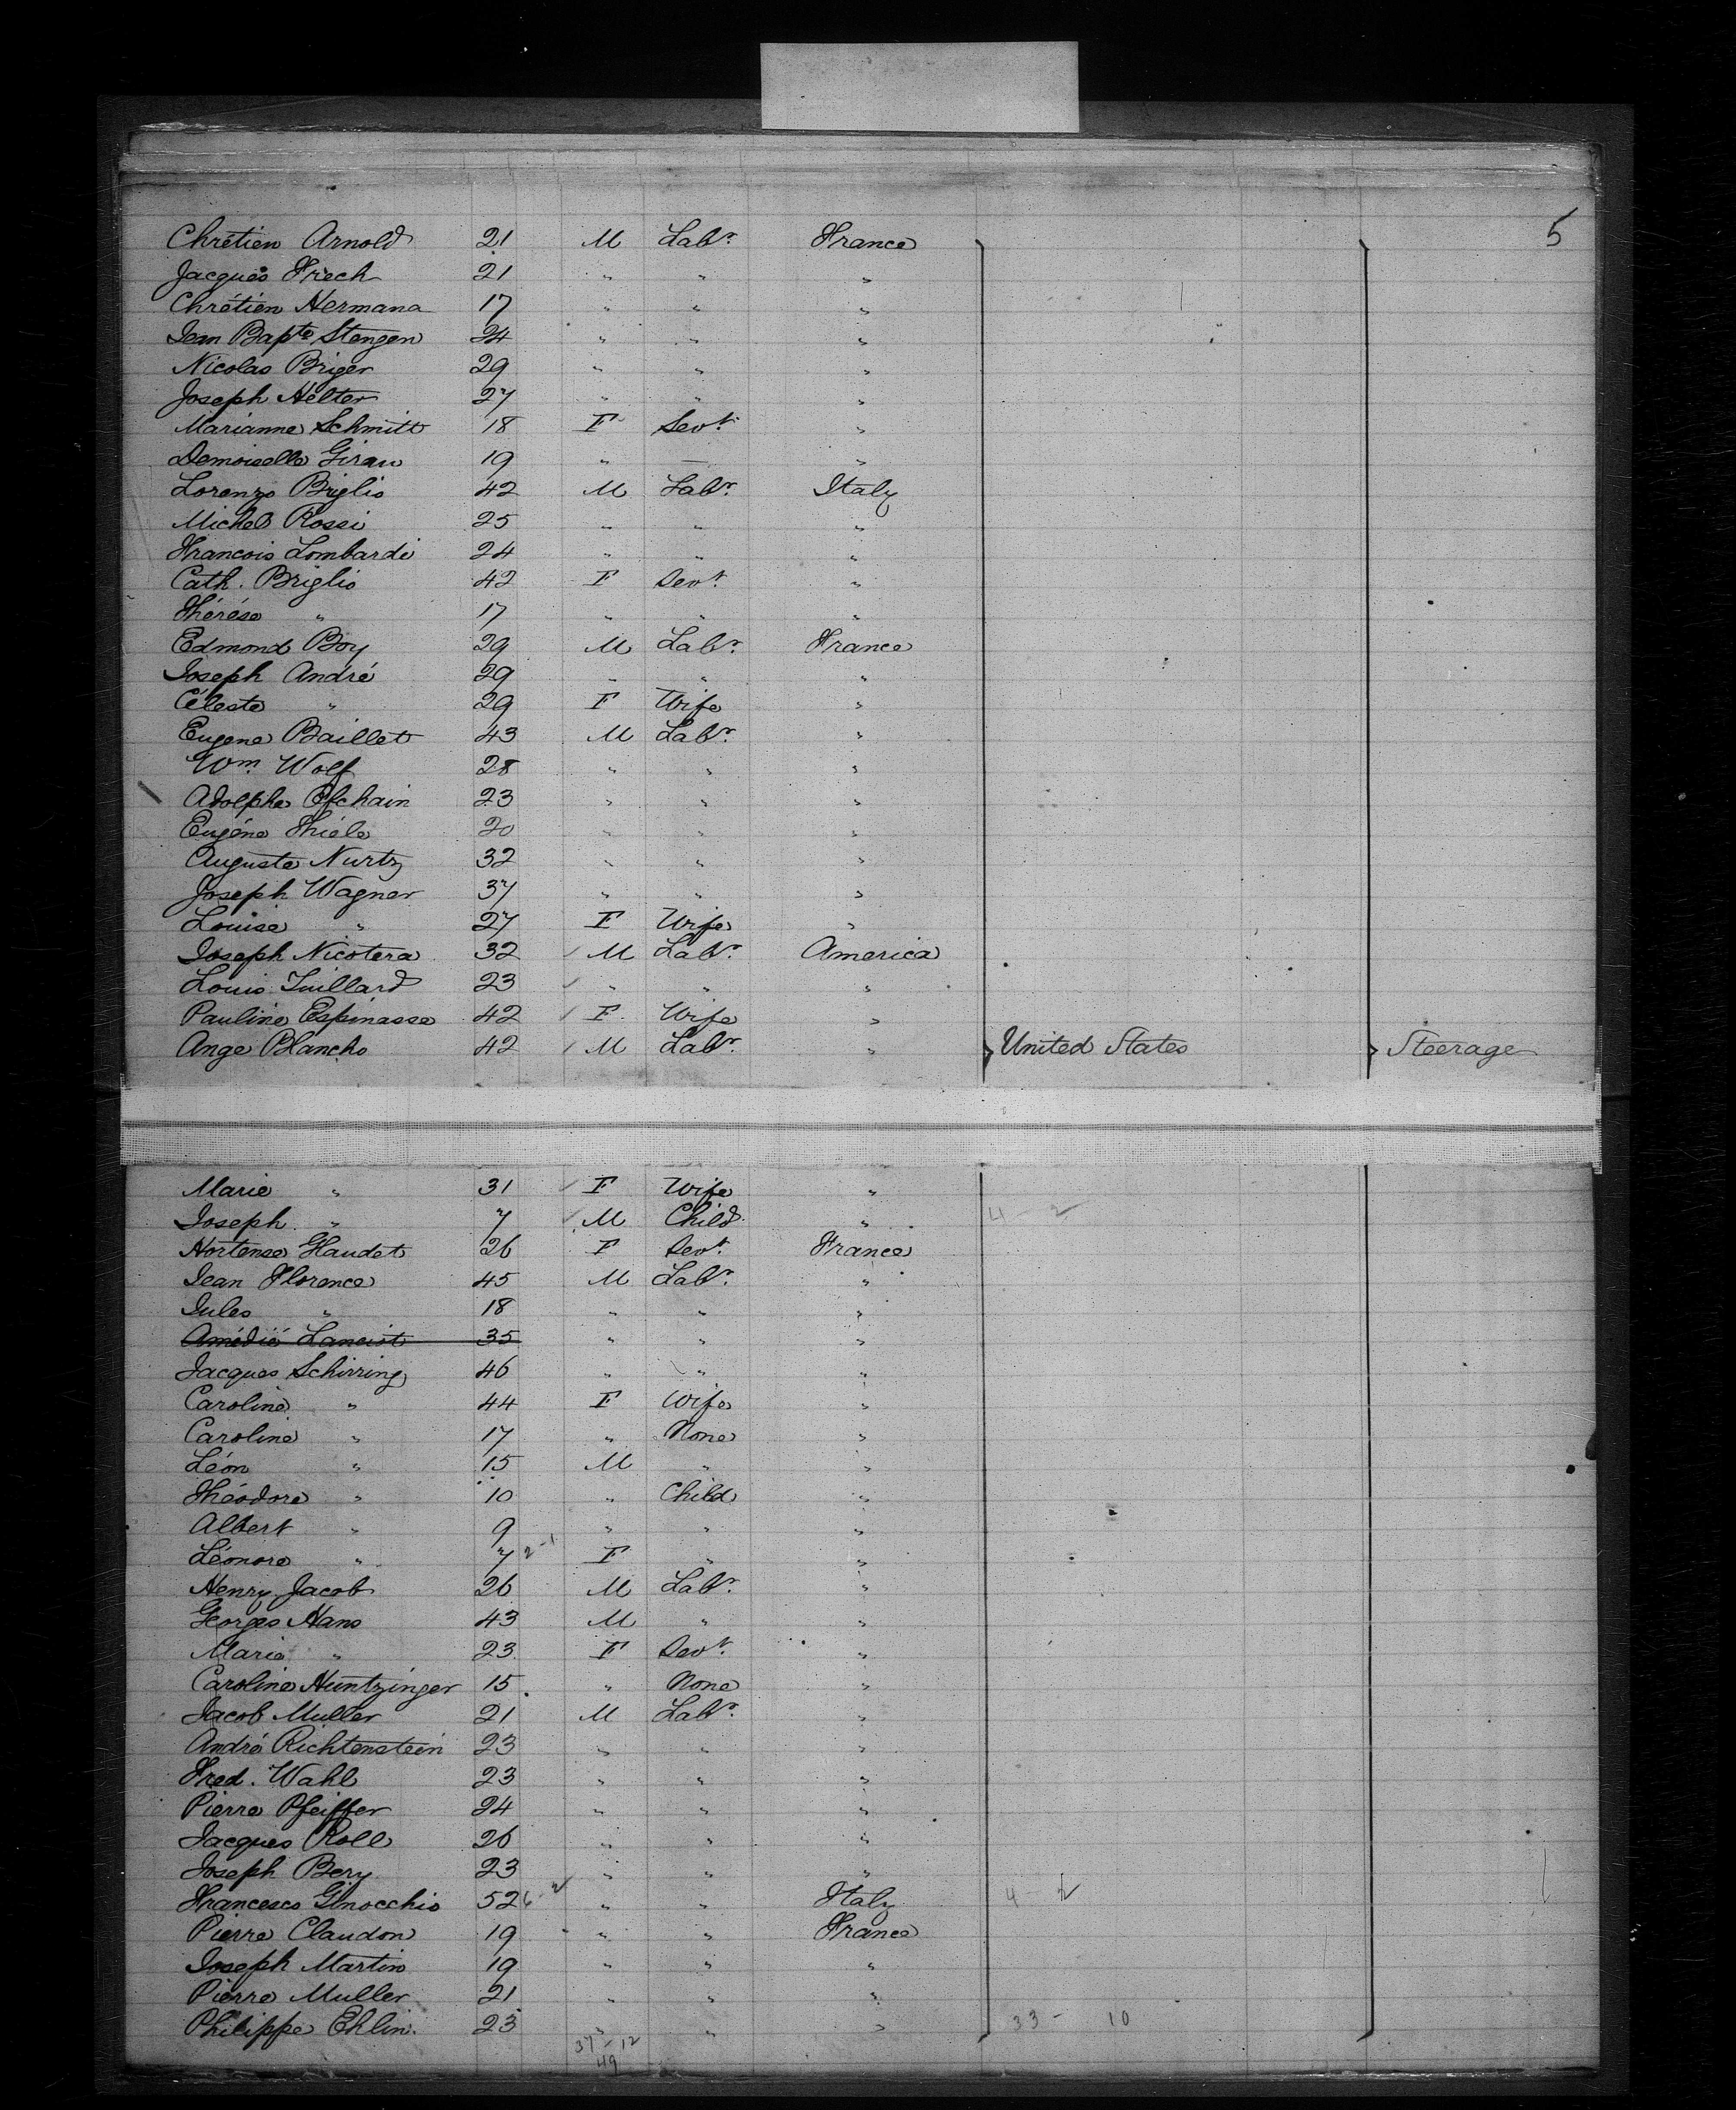 5
Chrétien Arnold 21 M Labr. France
Jacques Frech 21 " " "
Chrétien Hermann 17 " " "
Jean Bapte Stengen 24 " " "
Nicolas Briger 29 " " "
Joseph Helter 27 " " "
Marianne Schmitt 18 F Sevt. "
Demoiselle Girau 19 " — "
Lorenzo Briglio 42 M Labr. Italy
Michel Rossi 25 " " "
Francois Lombardi 24 " " "
Cath. Briglio 42 F Sevt. "
Thérése " 17 " " "
Edmond Boy 29 M Labr. France
Joseph André 29 " " "
Céleste " 29 F Wife "
Eugene Baillet 43 M Labr. "
Wm. Wolf 28 " " "
Adolphe 23 " " "
Eugéne Thiele 20 " " "
Auguste Nurtz 32 " " "
Joseph Wagner 37 " " "
Louise " 27 F Wife "
Joseph Nicotera 32 M Labr. America
Louis Juillard 23 " " "
Pauline Espinasse 42 F Wife "
Ange Blancho 42 M Labr. " United States Steerage
Marie " 31 F Wife "
Joseph " 7 M Child " 4 - 2
Hortense Haudet 26 F Sevt. France
Jean Florence 45 M Labr. "
Jules " 18 " " "
Amédié Lancist 35 " " "
Jacques Schirring 46 " " "
Caroline " 44 F Wife "
Caroline " 17 " None "
Léon " 15 M " "
Théodore " 10 " Child "
Albert " 9 " " "
Léonore " 7 2-1 F " "
Henry Jacob 26 M Labr. "
Georges Hans 43 M " "
Marie " 23 F Sevt. "
Caroline Huntzinger 15 " None "
Jacob Muller 21 M Labr. "
André Richtenstein 23 " " "
Fred. Wahl 23 " " "
Pierre Pfeiffer 24 " " "
Jacques Roll 26 " " "
Joseph Bery 23 " " "
Francesco Ginocchio 52 " " Italy
Pierre Claudon 19 " " France
Joseph Martin 19 " " "
Pierre Muller 21 " " "
Philippe Ehlin. 23 " " " 33 - 10
37 - 12
49